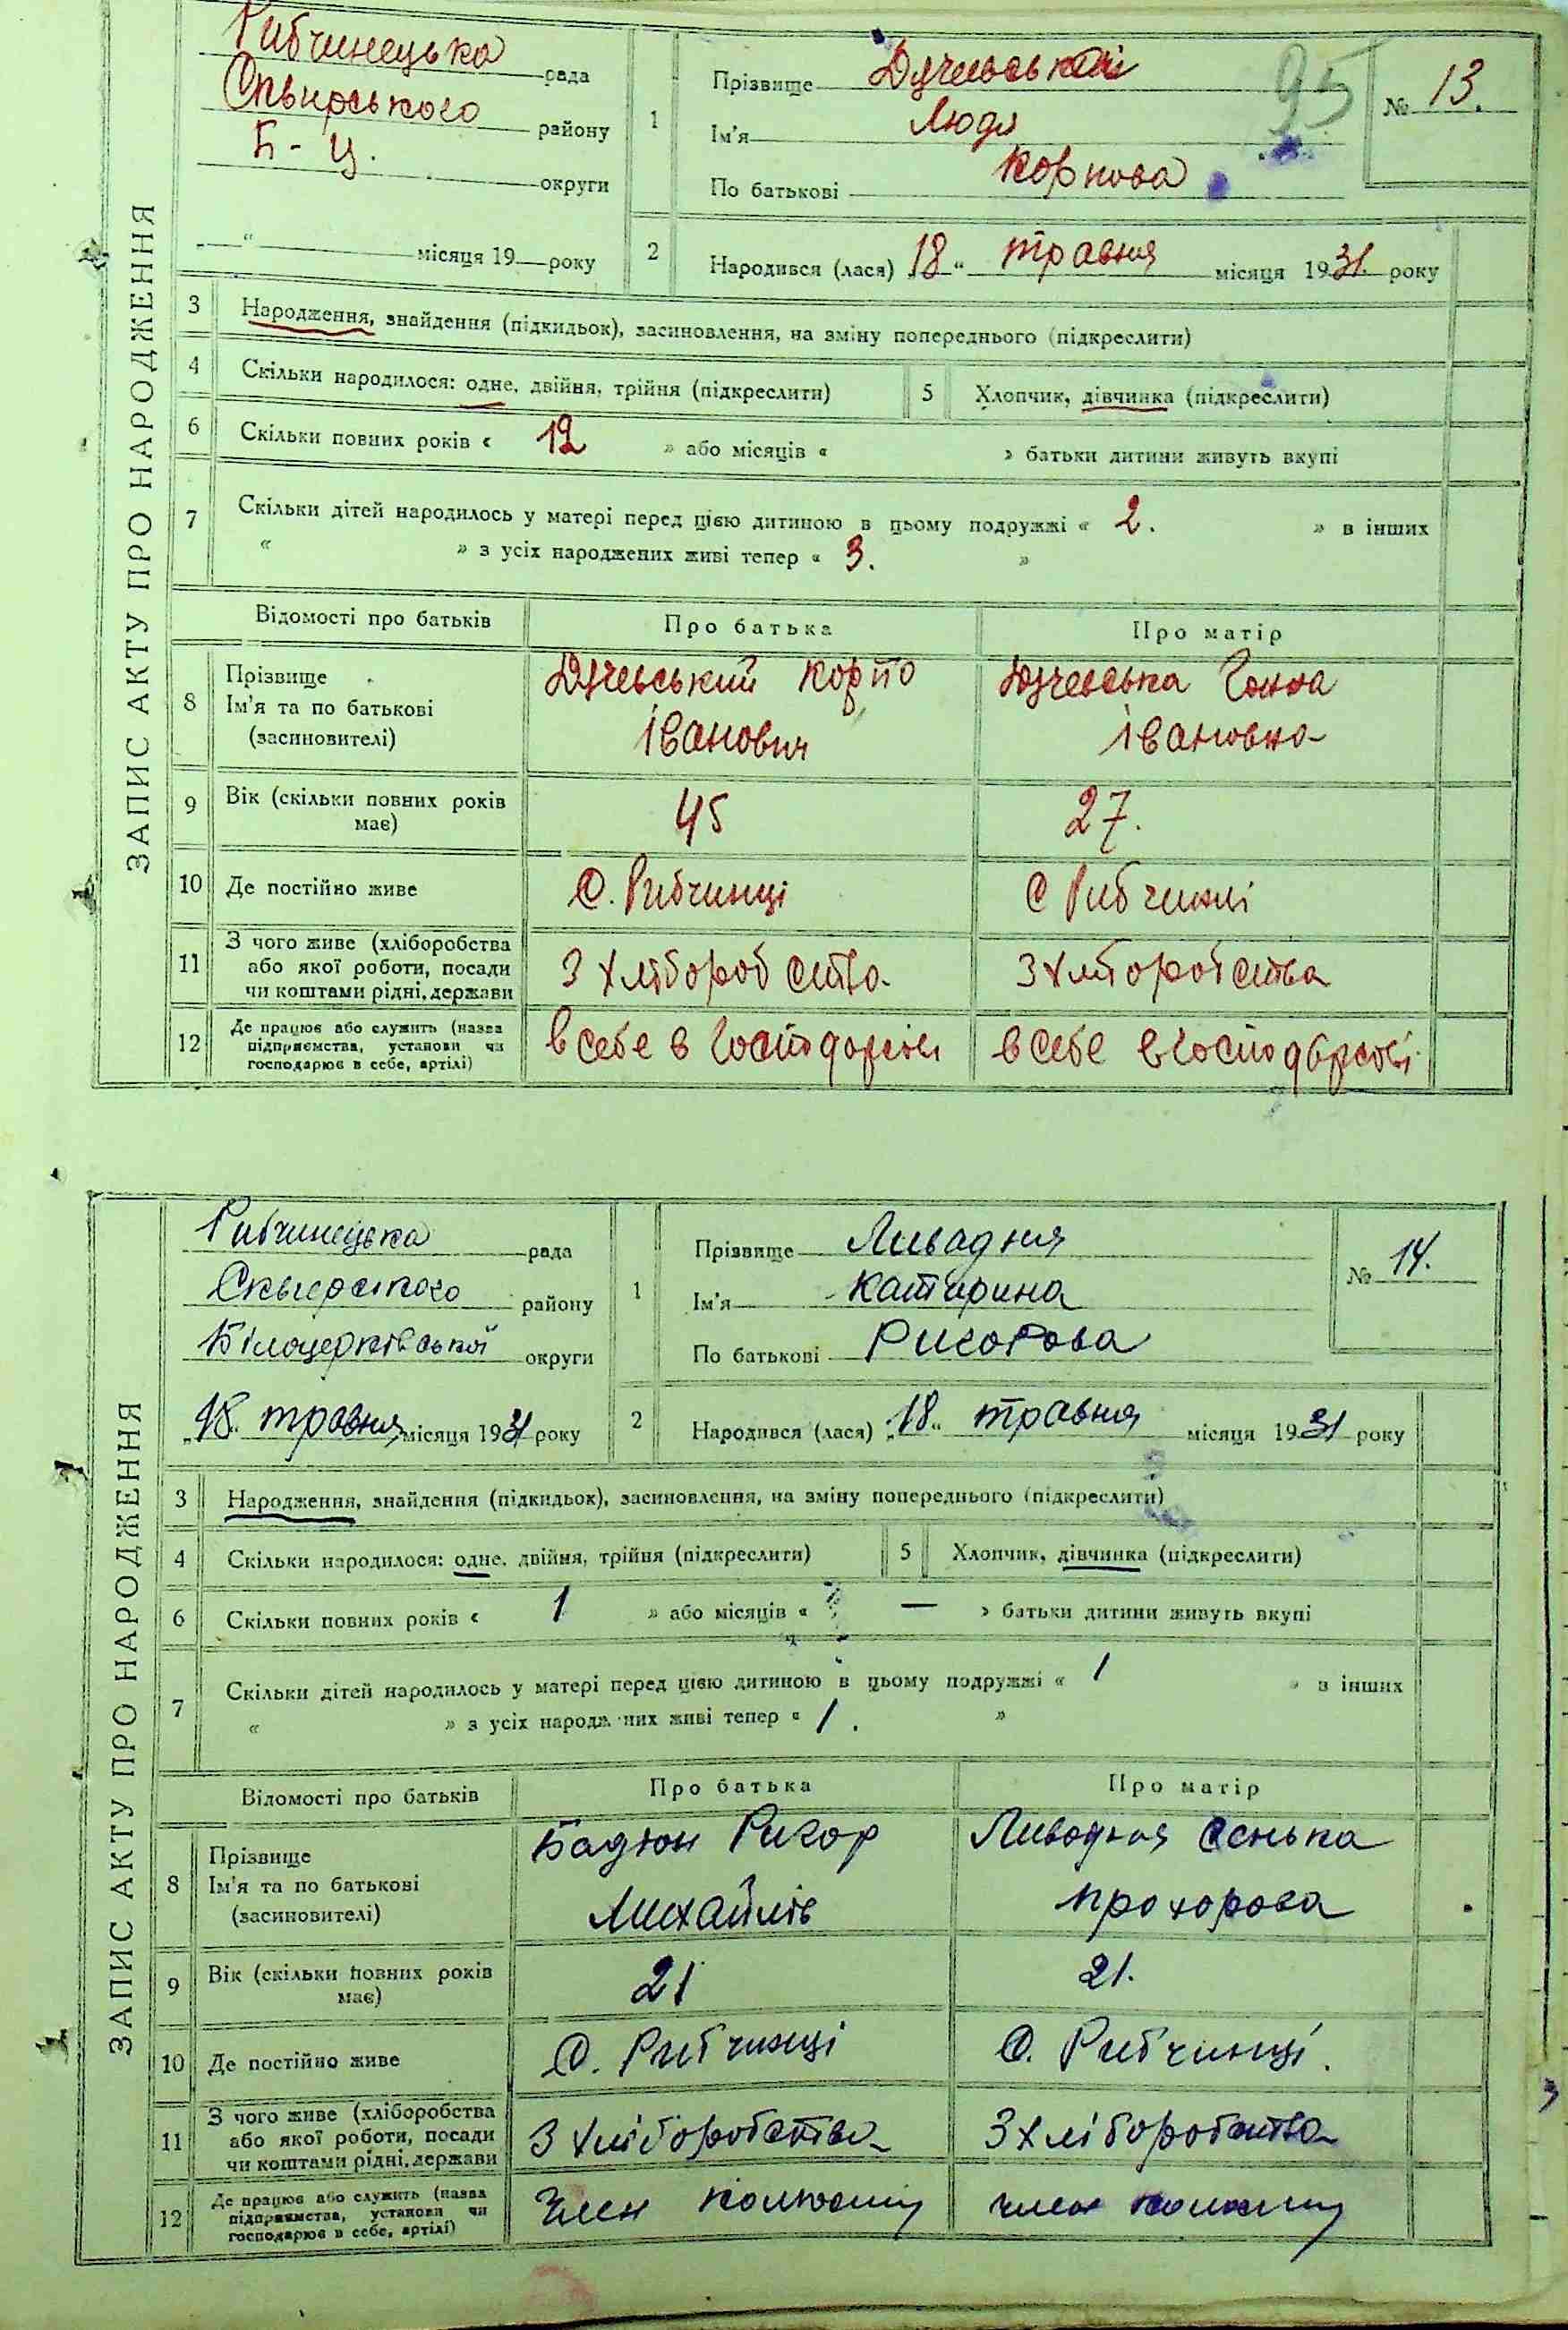 ЗАПИС АКТУ ПРО НАРОДЖЕННЯ
Рибчинецька рада
Сквирського району
Б-Ц. округи
„ “ місяця 19 року
1
Прізвище
Ім'я Люда
По батькові Корпова
95
№ 13.
2 Народився (лася) „18“ травня місяця 1931 року
3 Народження, знайдення (підкидьок), засиновлення, на зміну попереднього (підкреслити)
4 Скільки народилося: одне, двійня, трійня (підкреслити) 5 Хлопчик, дівчинка (підкреслити)
6 Скільки повних років « 12 » або місяців « » батьки дитини живуть вкупі
7 Скільки дітей народилось у матері перед цією дитиною в цьому подружжі « 2. » в інших
« » з усіх народжених живі тепер « 3. »
Відомості про батьків Про батька Про матір
8 Прізвище
Ім'я та по батькові
(засиновителі)
Корпо
Іванович
Івановна
9 Вік (скільки повних років має) 45 27.
10 Де постійно живе С. Рибчинці С Рибчинці
11 З чого живе (хліборобства
або якої роботи, посади
чи коштами рідні, держави
З хліборобства З хліборобства
12 Де працює або служить (назва
підприємства, установи чи
господарює в себе, артілі)
в себе в господарсві в себе в господарсві
ЗАПИС АКТУ ПРО НАРОДЖЕННЯ
Рибчинецька рада
Сквирського району
Білоцерківської округи
„18. травня місяця 1931 року
1
Прізвище Ливадня
Ім'я Катирина
По батькові Ригорова
№ 14.
2 Народився (лася) „18“ травня місяця 1931 року
3 Народження, знайдення (підкидьок), засиновлення, на зміну попереднього (підкреслити)
4 Скільки народилося: одне, двійня, трійня (підкреслити) 5 Хлопчик, дівчинка (підкреслити)
6 Скільки повних років « 1 » або місяців « — » батьки дитини живуть вкупі
7 Скільки дітей народилось у матері перед цією дитиною в цьому подружжі « 1 » в інших
« » з усіх народжених живі тепер « 1. »
Відомості про батьків Про батька Про матір
8 Прізвище
Ім'я та по батькові
(засиновителі)
Бадюн Ригор
Михайлів
Ливадня
Прохорова
9 Вік (скільки повних років має) 21 21.
10 Де постійно живе С. Рибчинці С. Рибчинці.
11 З чого живе (хліборобства
або якої роботи, посади
чи коштами рідні, держави
З хліборобства З хліборобства
12 Де працює або служить (назва
підприємства, установи чи
господарює в себе, артілі)
Член колгоспу член колгоспу